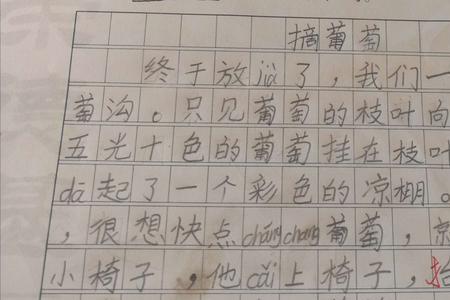 摘葡萄
终于放jià了，我们一
萄沟。只见葡萄的枝叶向
五光十色的葡萄挂在枝叶
dā起了一个彩色的凉棚。
，很想快点chángchang葡萄，
小椅子，他cǎi上椅子，抬